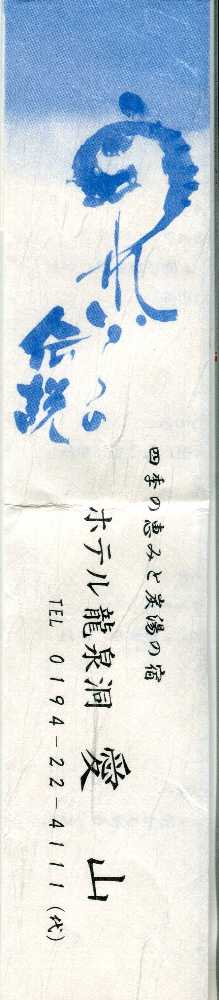 伝説
四季の恵みと炭湯の宿
ホテル龍泉洞 愛山
TEL 0194-22-4111(代)